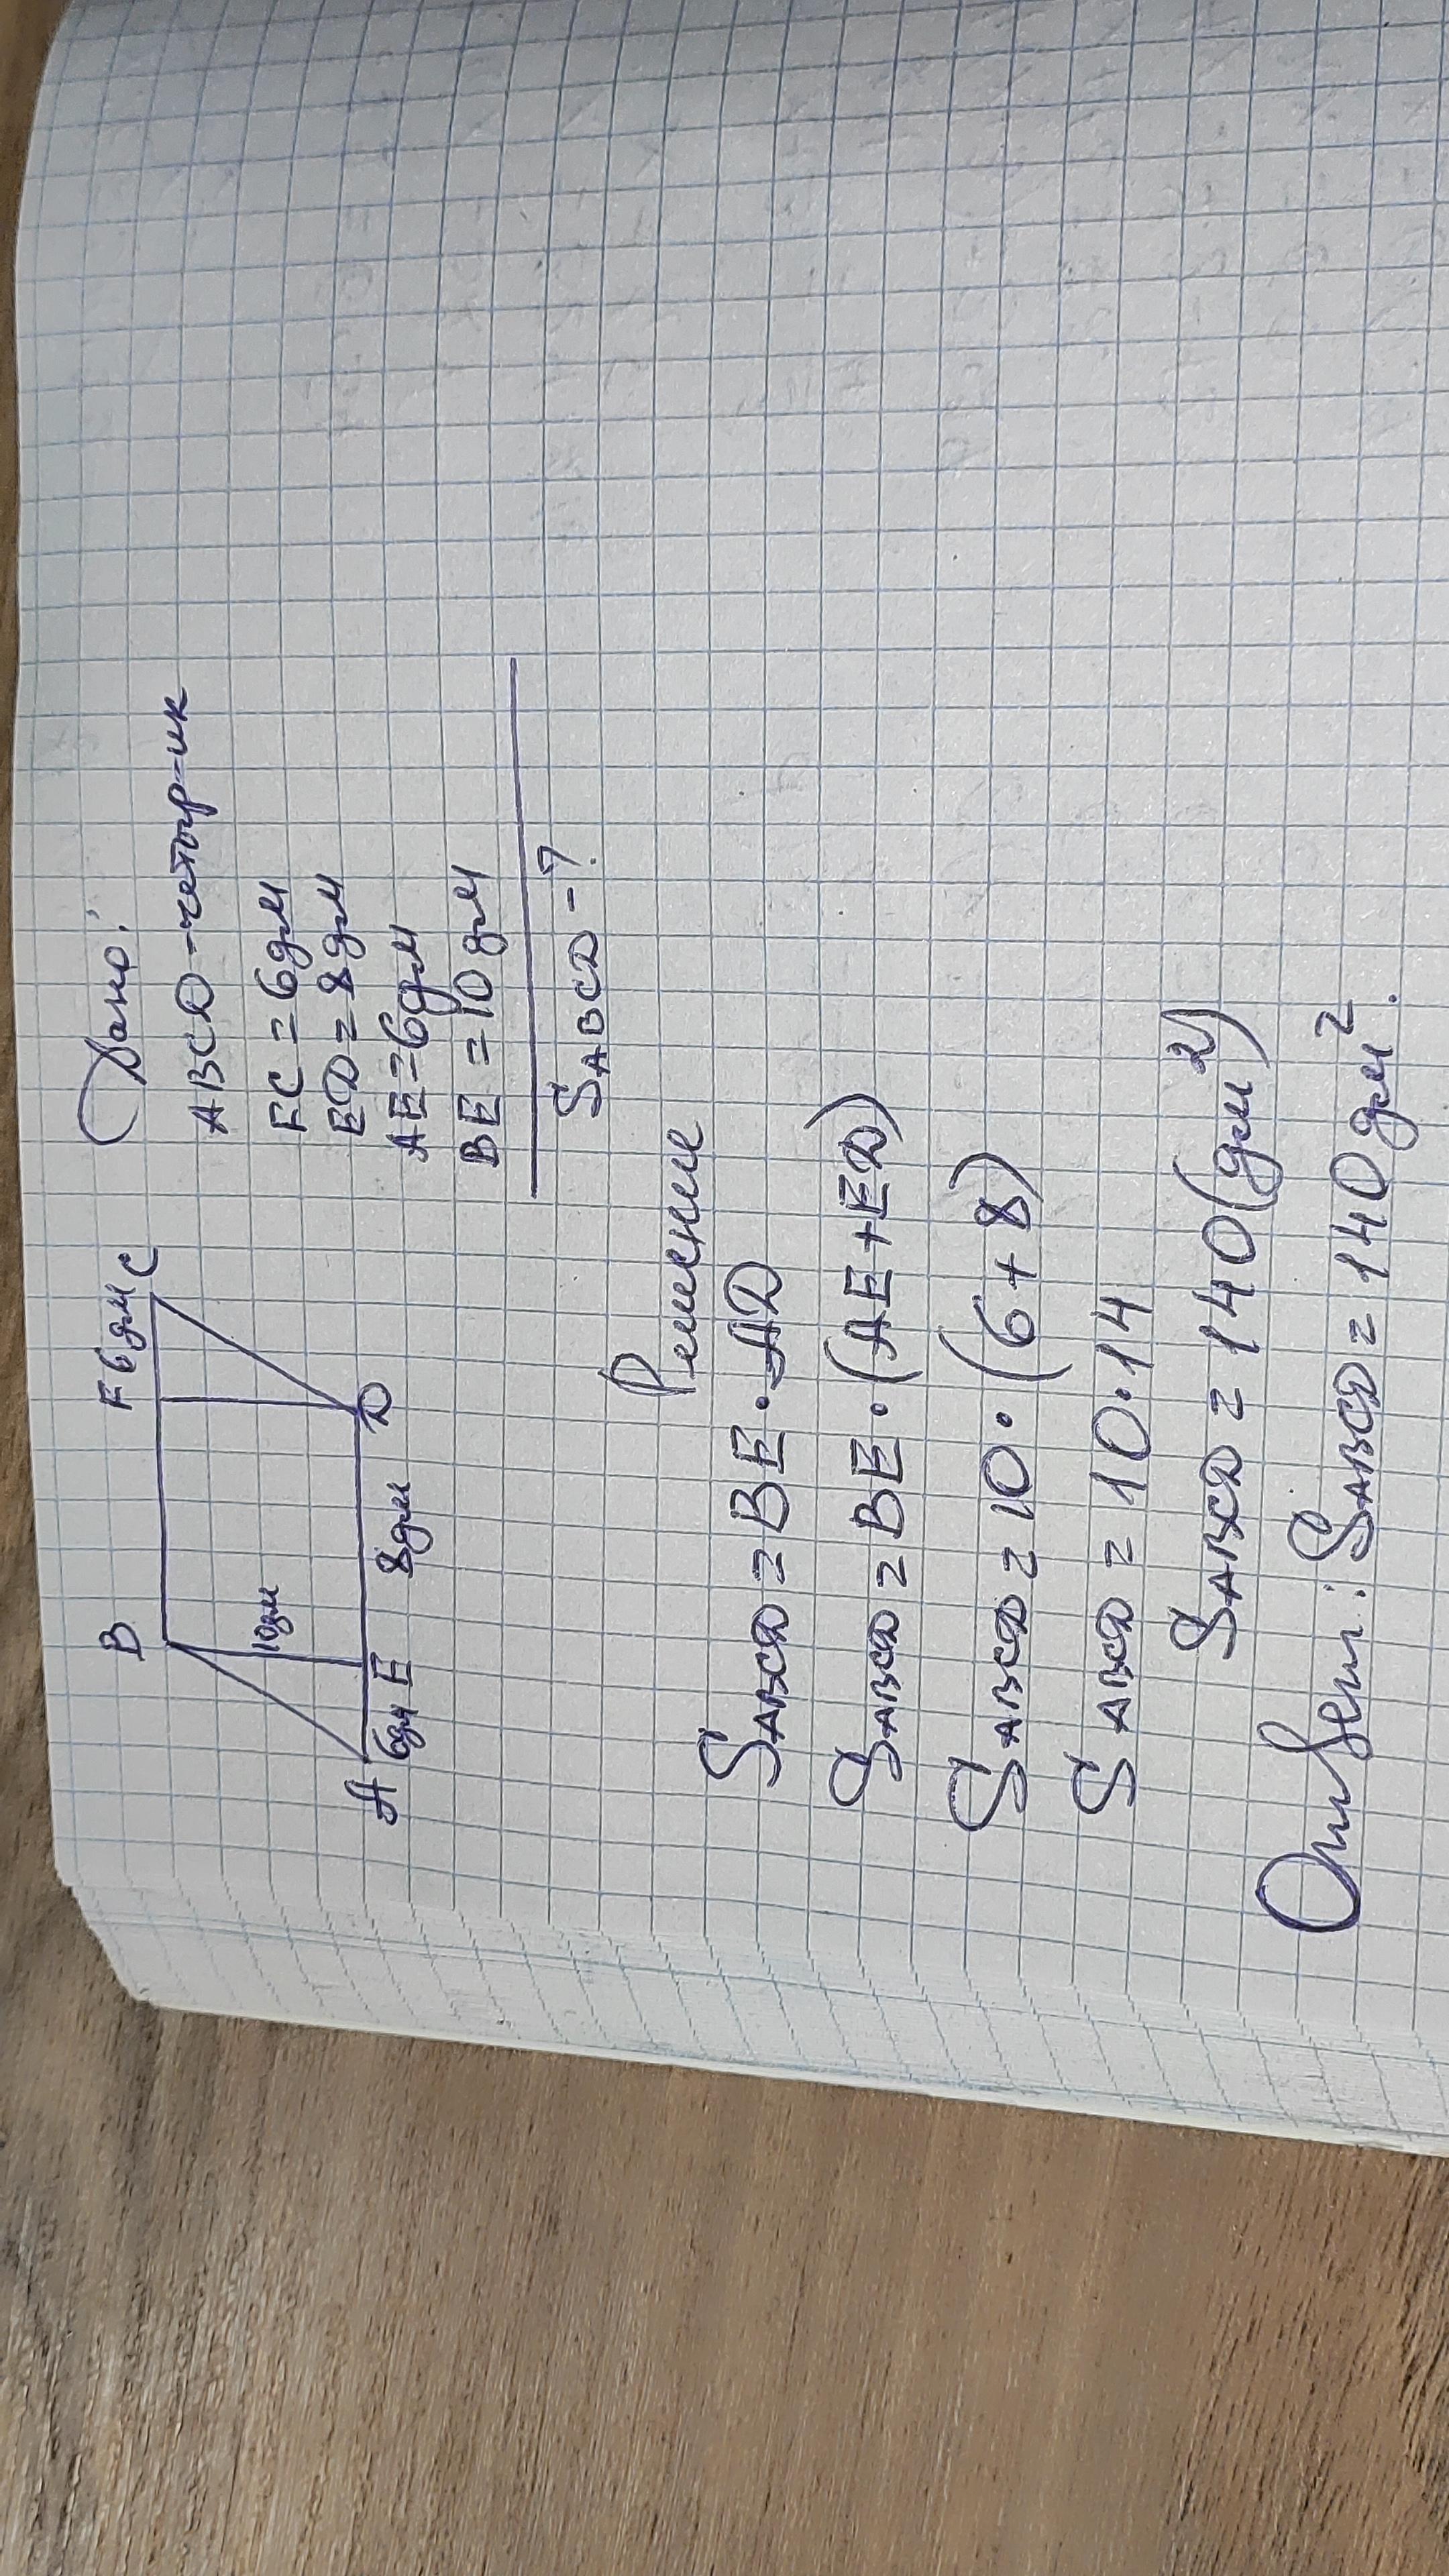 B F 6 дм C
10дм
A 6дм E 8дм D
Дано:
ABCD-четыр-ик
FC = 6дм
ED = 8дм
AE = 6дм
BE = 10дм
SABCD - ?
Решение
SABCD = BE · AD
SABCD = BE · (AE + ED)
SABCD = 10 · (6 + 8)
SABCD = 10 · 14
SABCD = 140 (дм²)
Ответ: SABCD = 140 дм².